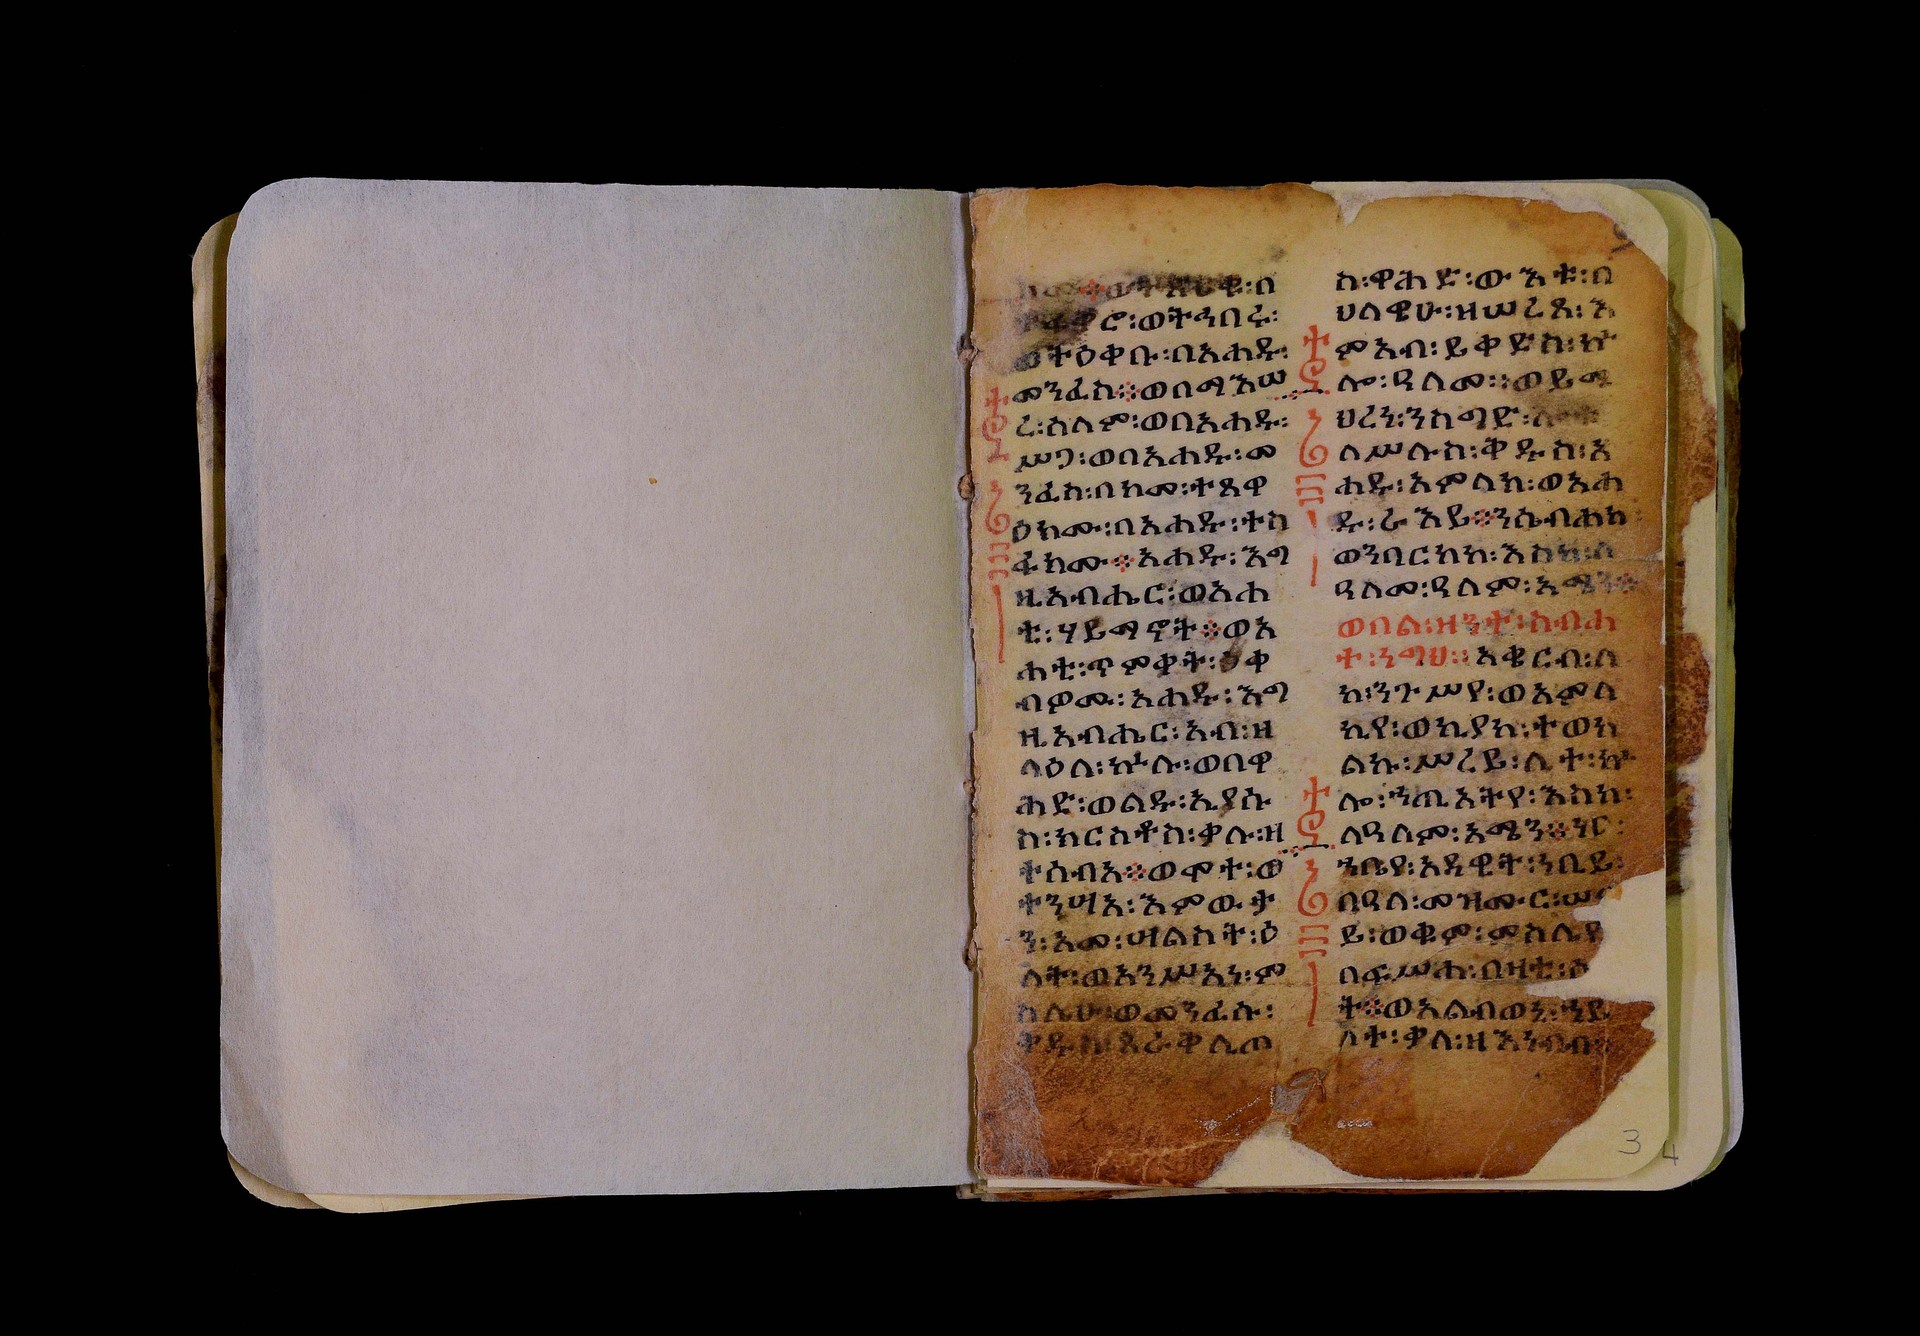 ሮ፡ወትኅበሩ፡
ወትዕቀቡ፡በአሐዱ፡
መንፈስ፨ወበማእሠ
ረ፡ሰላም፡ወበአሐዱ፡
ሥጋ፡ወበአሐዱ፡መ
ንፈስ፡በከመ፡ተጸዋ
ዕክሙ፡በአሐዱ፡ተስ
ፋክሙ፨አሐዱ፡እግ
ዚአብሔር፡ወአሐ
ቲ፡ሃይማኖት፨ወአ
ሐቲ፡ጥምቀት፡ዕቀ
ብዎሙ፡አሐዱ፡እግ
ዚአብሔር፡አብ፡ዘ
ላዕለ፡ኵሉ፡ወበዋ
ሕድ፡ወልዱ፡ኢያሱ
ስ፡ክርስቶስ፡ቃሉ፡ዘ
ተሰብአ፨ወሞተ፡ወ
ተንሣአ፡እምውታ
ን፡አመ፡ሣልስት፡ዕ
ለት፡ወአንሥአነ፡ም
ስሌሁ፡ወመንፈሱ፡
ቅዱስ፡ጰራቅሊጦ
ስ፡ዋሕድ፡ውእቱ፡በ
ህላዌሁ፡ዘሠረጸ፡እ
ምአብ፡ይቀድስ፡ኵ
ሎ፡ዓለመ፡፡ወይሜ
ህረነ፡ንስግድ፡
ለሥሉስ፡ቅዱስ፡አ
ሐዱ፡አምላክ፡ወአሐ
ዱ፡ራእይ፨ንሴብሐከ
ወንባርከከ፡እስከ፡ለ
ዓለመ፡ዓለም፡አሜን፨
ወበል፡ዘንተ፡ስብሐ
ተ፡ነግህ፡፡አቄርብ፡ለ
ከ፡ንጉሥየ፡ወአምላ
ኪየ፡ወኪያከ፡ተወከ
ልኩ፡ሥረይ፡ሊተ፡ኵ
ሎ፡ኀጢአትየ፡እስከ፡
ለዓለም፡አሜን፨ነር
ንቤየ፡አዳዊት፡ነቢይ፡
በዓለ፡መዝሙር፡ሠና
ይ፡ወቁም፡ምስሌየ
በፍሥሐ፡በዛቲ፡ዕ
ት፨ወአልብወኒ፡ኀይ
ለተ፡ቃለ፡ዘእነብብ
3
4